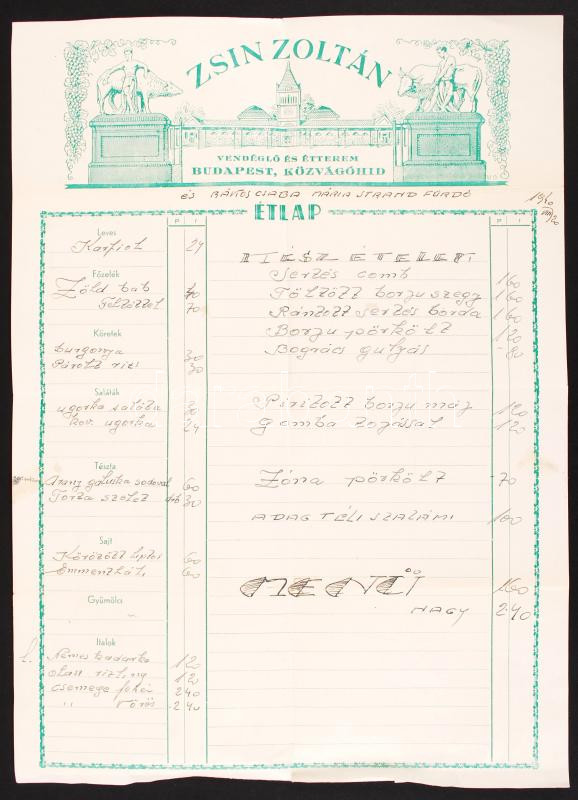 ZSIN ZOLTÁN
VENDÉGLŐ ÉS ÉTTEREM
BUDAPEST, KÖZVÁGÓHID
ÉS RÁKOSCSABA MÁRIA STRAND FÜRDŐ
1940
VIII/20
ÉTLAP
P f
Leves
Karfiol 24
Főzelék
Zöld bab 40
Feltéttel 70
Köretek
burgonya 30
Párolt rizs 30
Saláták
ugorka saláta 30
kov. ugorka 24
Tészta
Arany galuska sodoval 60
Torta szelet drb 30
Sajt
Körözött liptoi 60
Emmentháli 60
Gyümölcs
Italok
Nemes kadarka 1 20
olasz rizling 1 20
csemege fehér 2 40
" vörös 2 40
P f
KÉSZ ÉTELEK:
Sertés comb 1 60
Töltött borju szegy 1 60
Rántott sertés borda 1 60
Borju pörkölt 1 20
Bogrács gulyás - 80
Piritott borju máj 1 20
Gomba tojással 1 20
Zóna pörkölt - 70
ADAG TÉLI SZALÁMI 1 60
MENÜ 1 60
NAGY 2 40